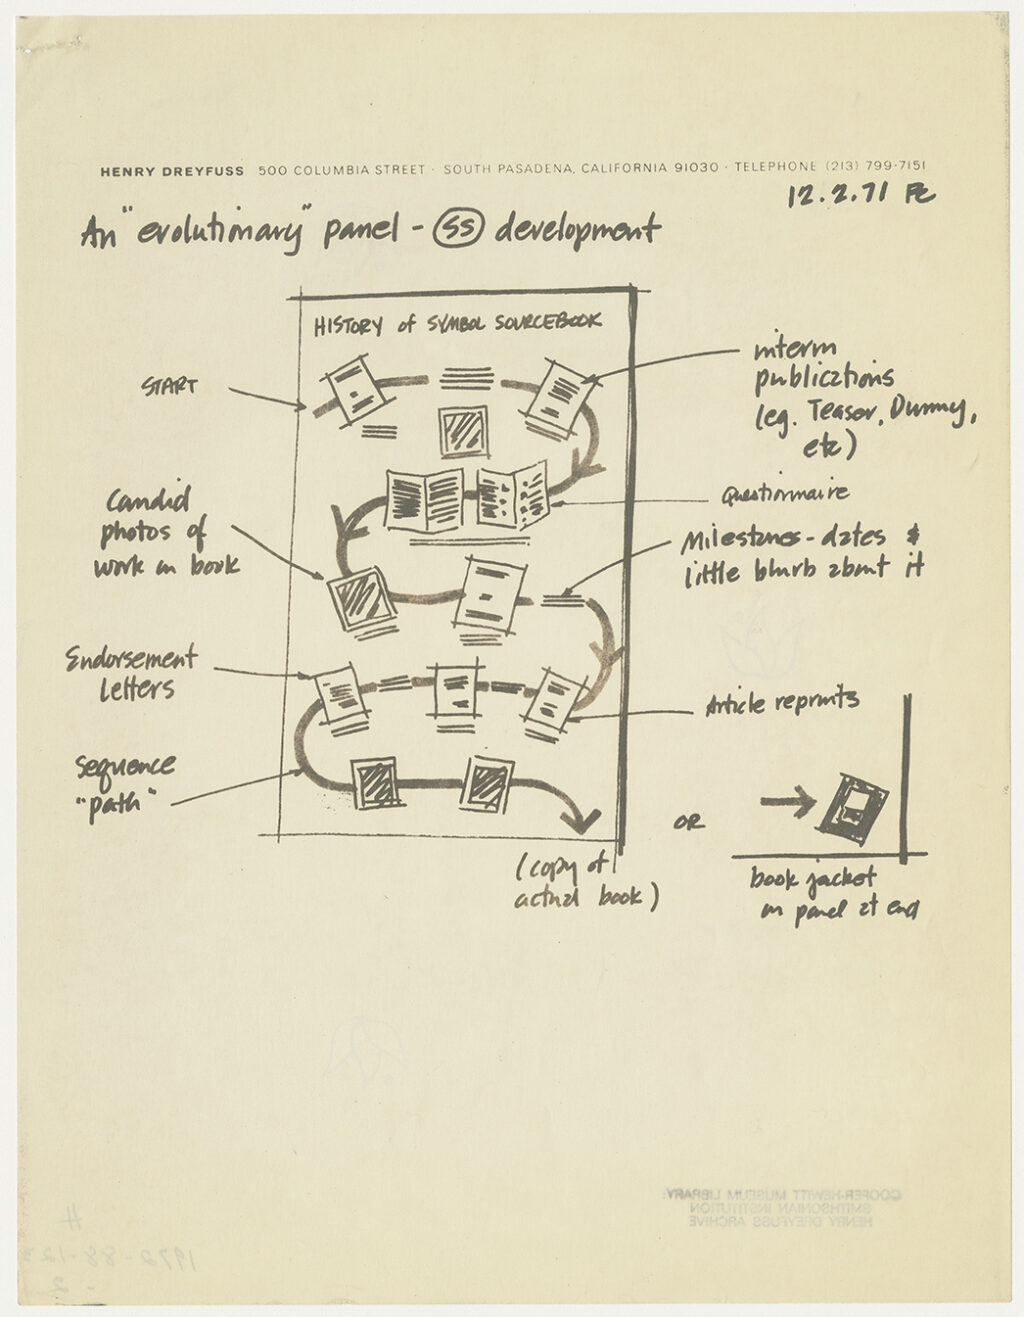 HENRY DREYFUSS 500 COLUMBIA STREET · SOUTH PASADENA, CALIFORNIA 91030 · TELEPHONE (213) 799-7151
12.2.71 FC
An "evolutionary" panel - SS development
HISTORY of SYMBOL SOURCEBOOK
START
interim
publications
(eg. Teaser, Dummy,
etc)
Questionnaire
Candid
photos of
work on book
Milestones - dates &
little blurb about it
Endorsement
Letters
Article reprints
Sequence
"path"
OR
(copy of
actual book)
book jacket
on panel at end
COOPER-HEWITT MUSEUM LIBRARY
SMITHSONIAN INSTITUTION
HENRY DREYFUSS ARCHIVE